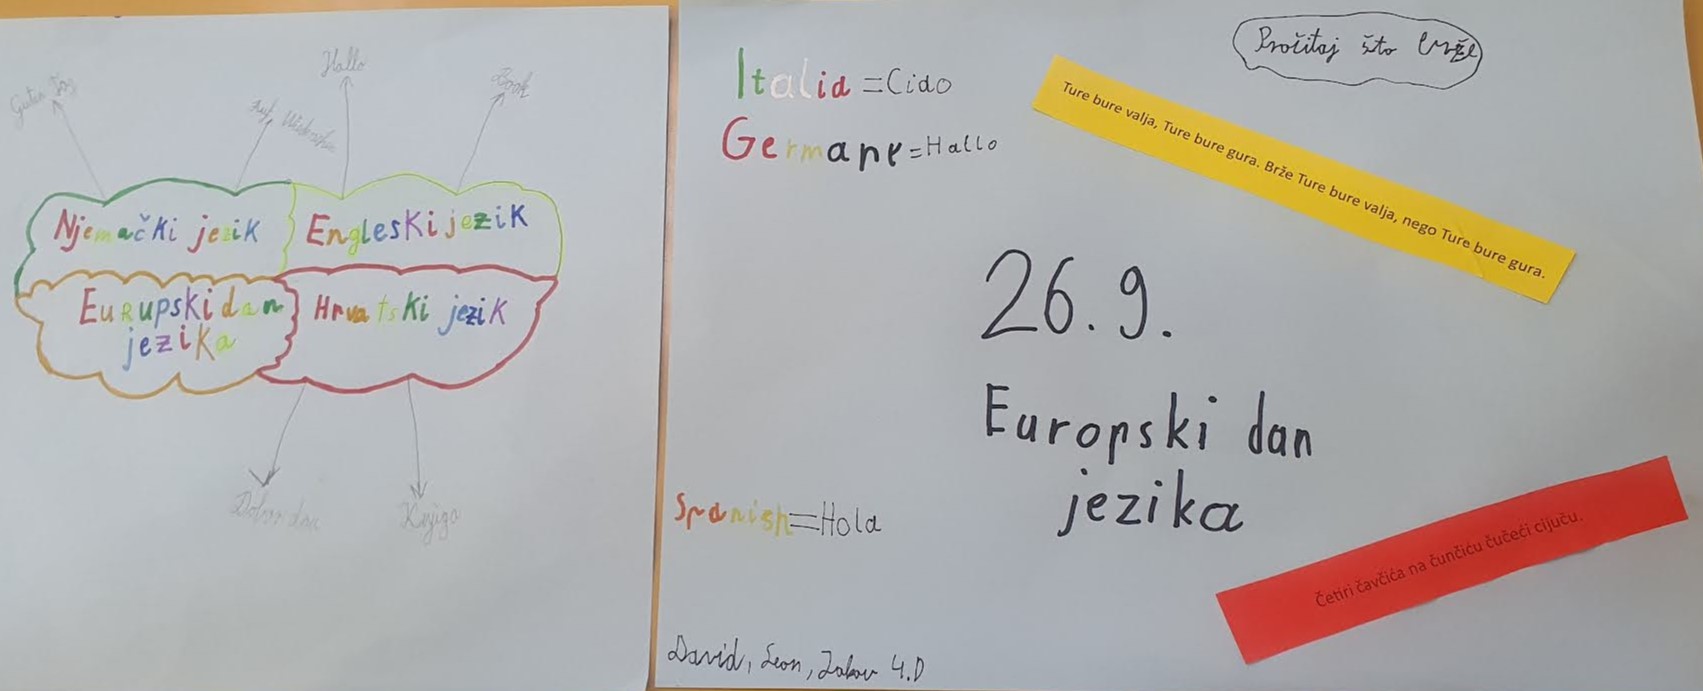 Guten Tag
Auf Wiedersehen
Hallo
Book
Njemački jezik
Engleski jezik
Eurupski dan
jezika
Hrvatski jezik
Dobar dan
Knjiga
Italia = Ciao
Germane = Hallo
Spanish = Hola
David, Leon, Jakov 4.D
Pročitaj što brže
Ture bure valja, Ture bure gura. Brže Ture bure valja, nego Ture bure gura.
26. 9.
Europski dan
jezika
Četiri čavčića na čunčiću čučeći cijuču.